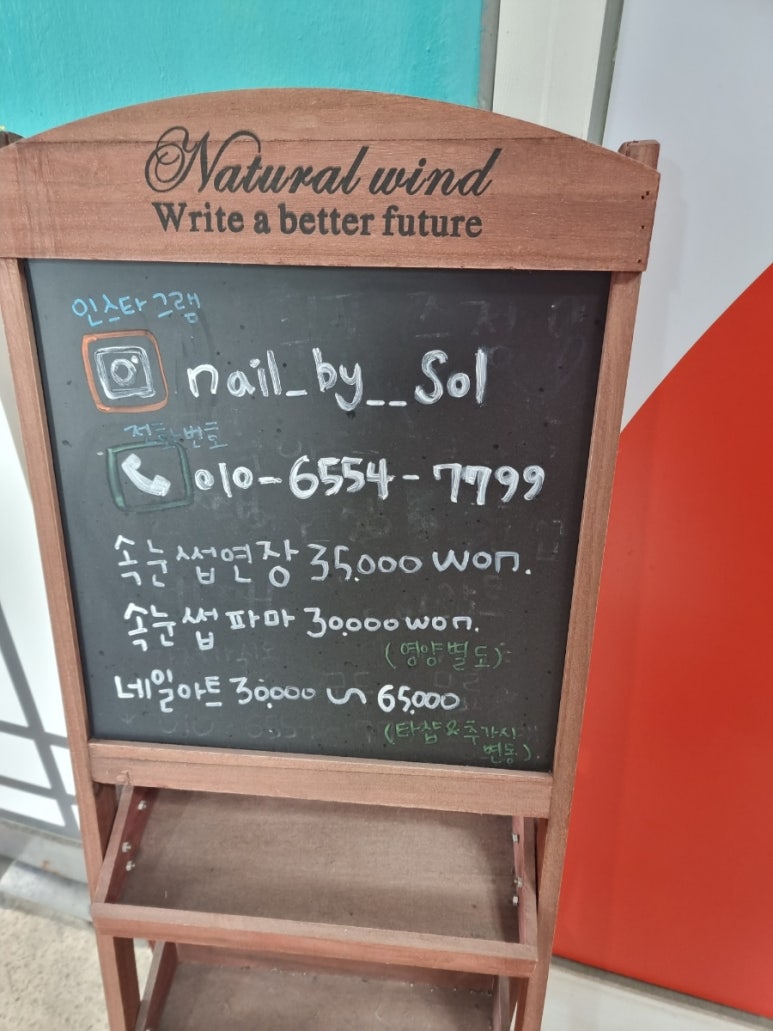 Natural wind
Write a better future
인스타그램
nail_by__Sol
전화번호
010-6554-7799
속눈썹연장 35.000 won.
속눈썹 파마 30.000 won.
(영양별도)
네일아트 30.000 ~ 65.000
(타샵&추가시
변동).